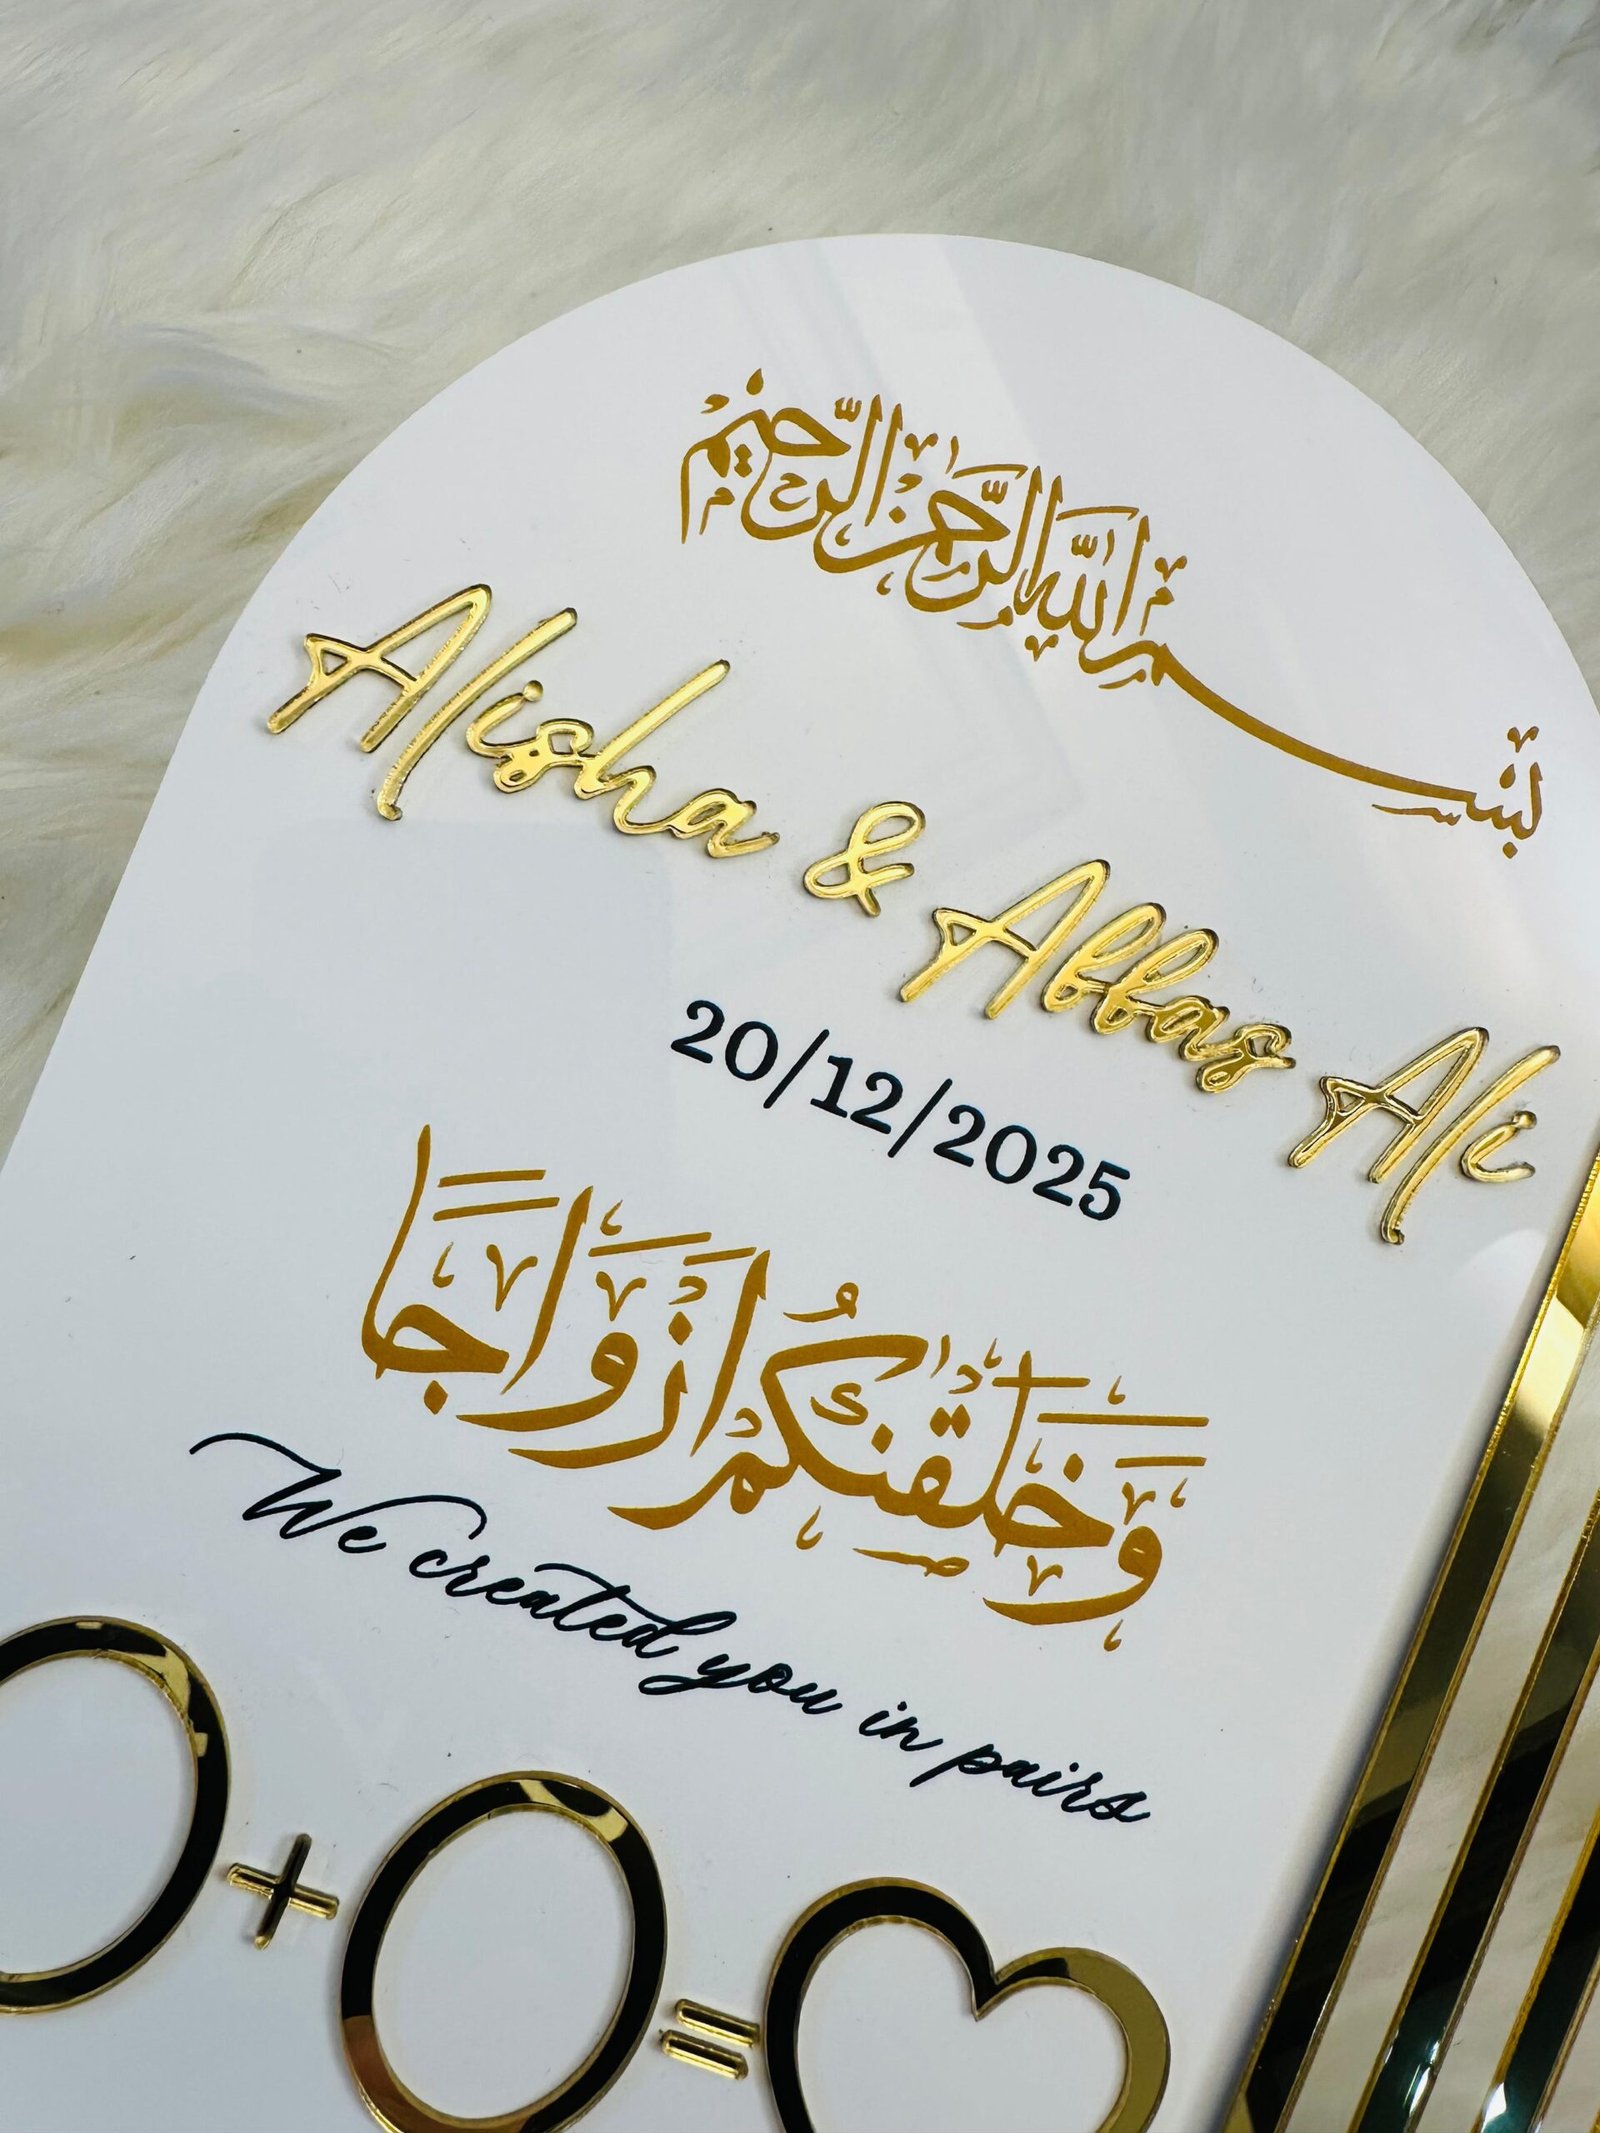 بِسْمِ اللَّهِ الرَّحْمَٰنِ الرَّحِيمِ
Alisha & Abbas Ali
20/12/2025
وَخَلَقْنَاكُمْ أَزْوَاجًا
We created you in pairs
+ =